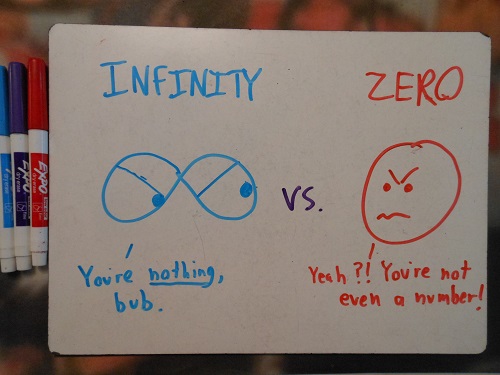 INFINITY
ZERO
vs.
You're nothing,
bub.
Yeah?! You're not
even a number!
EXPO
EXPO